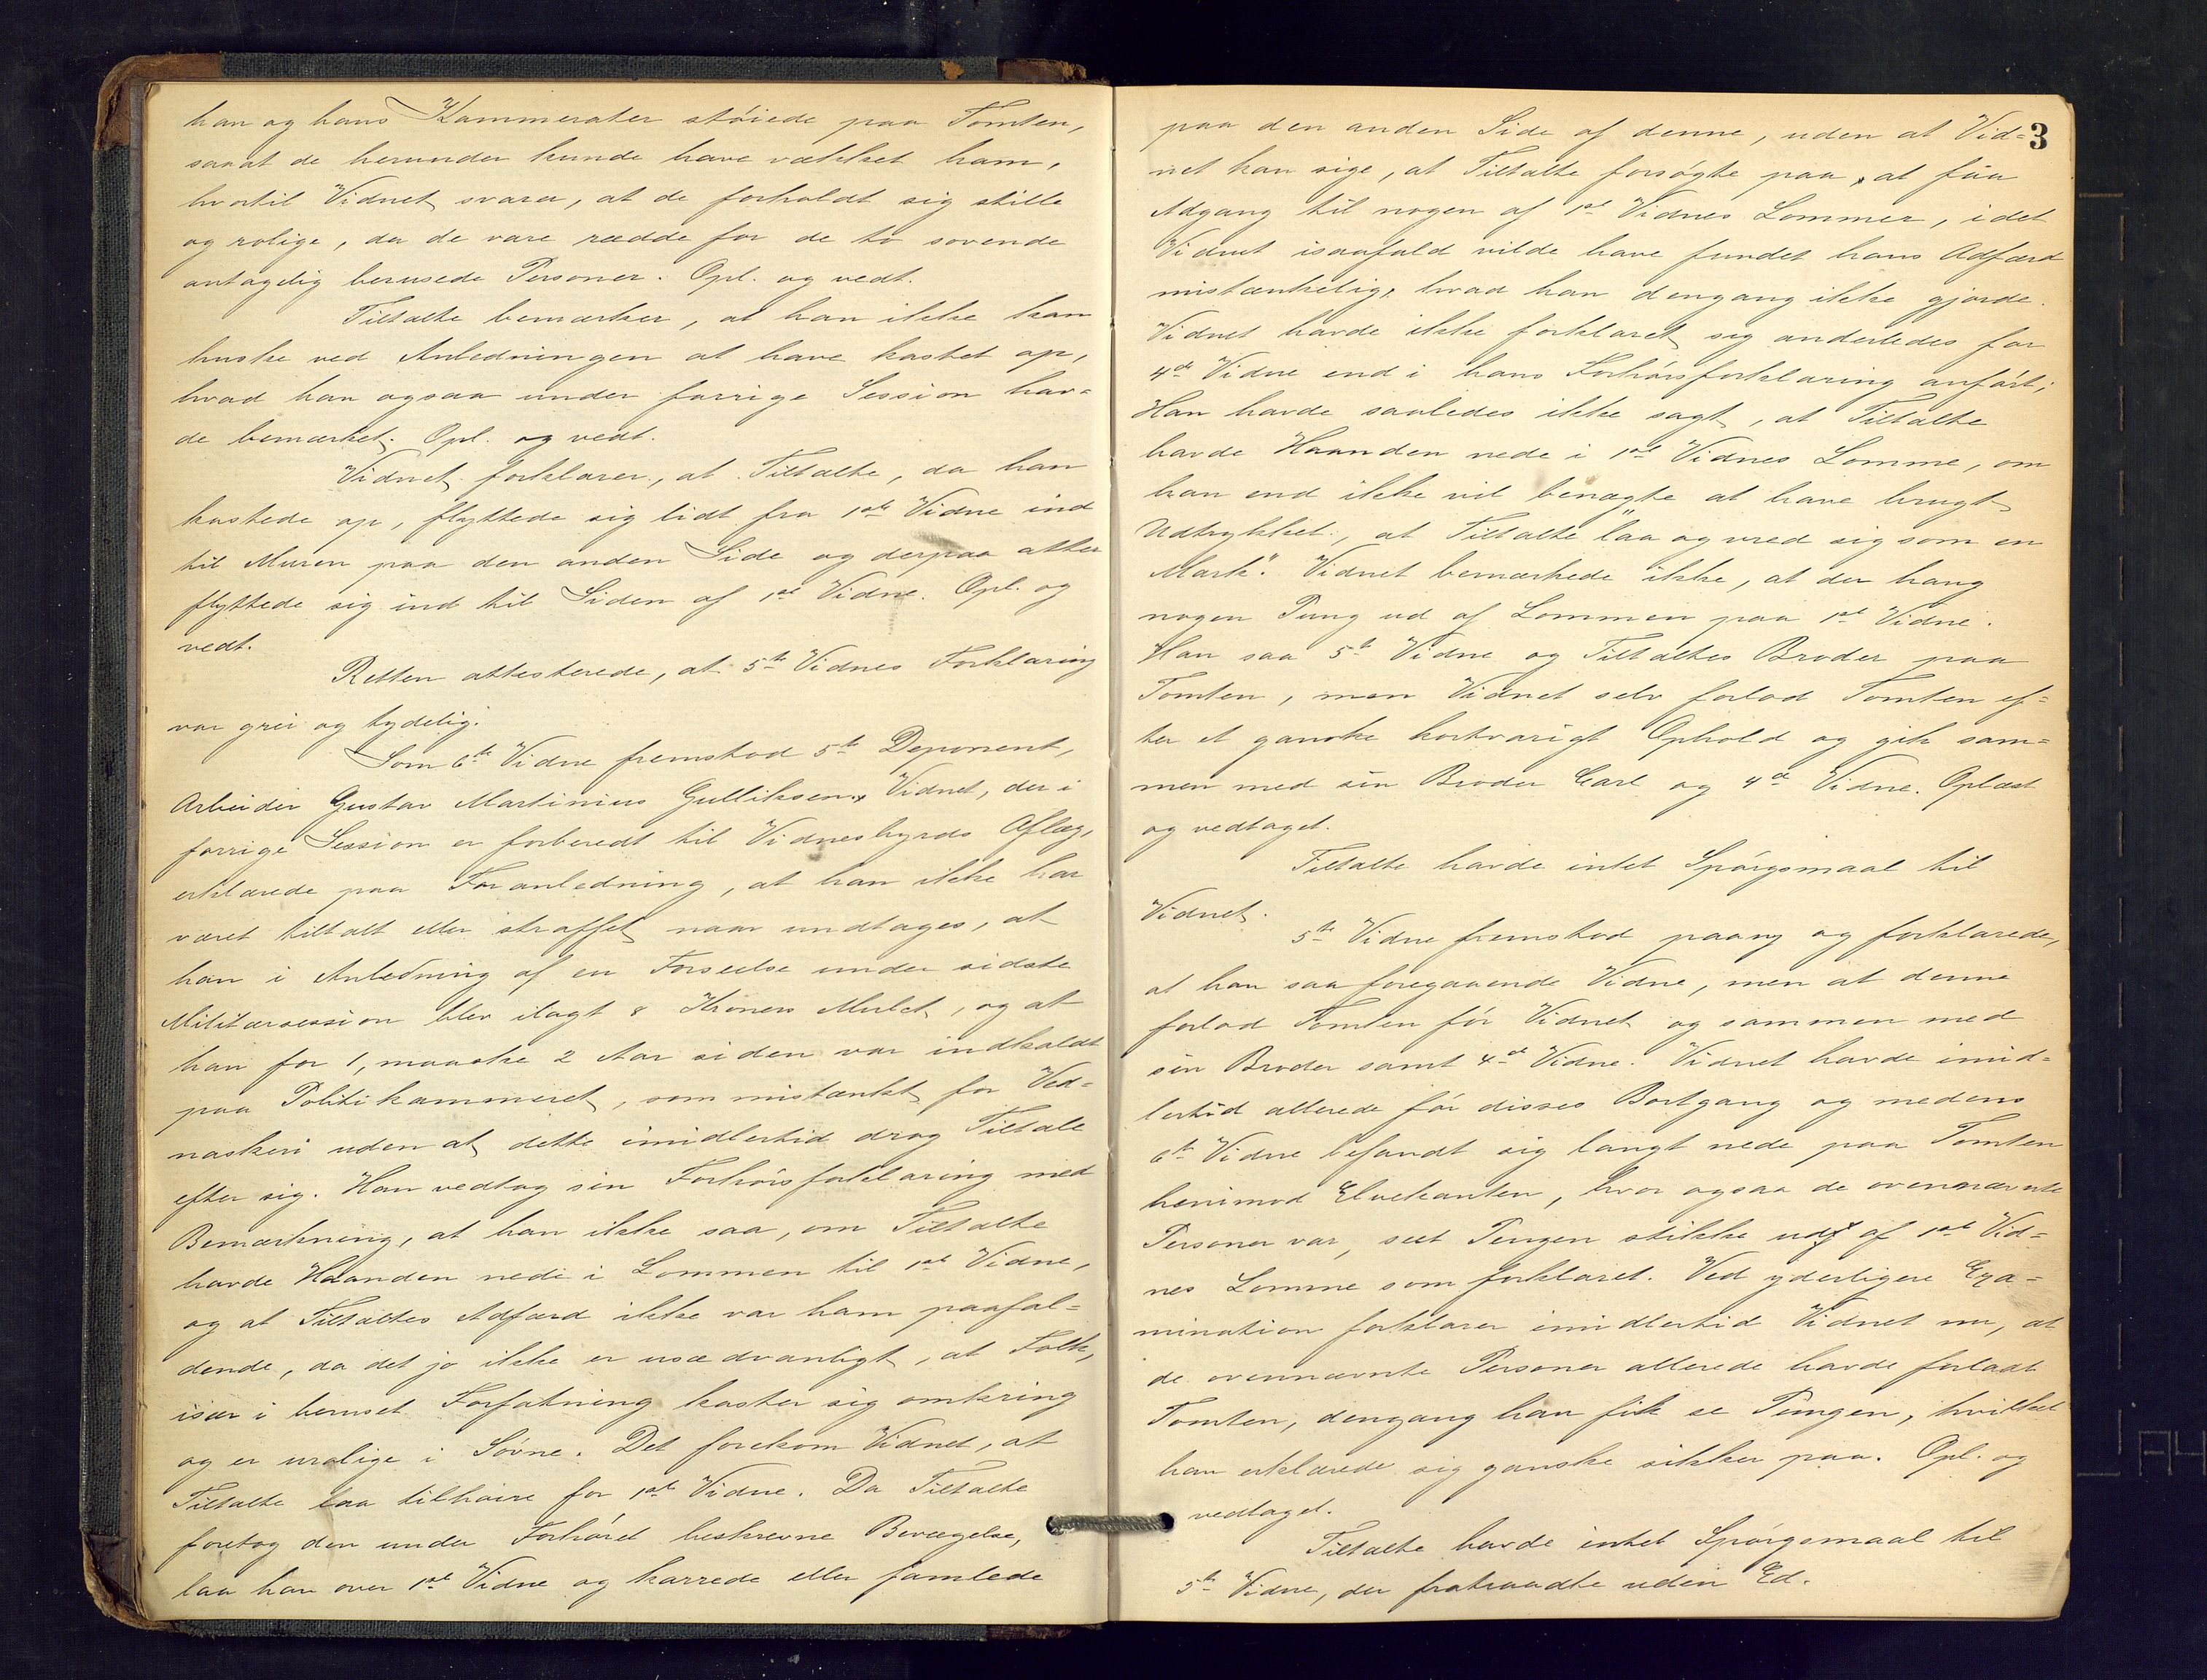 han og hans Kammerater støiede paa Tomten,
saaat de herunder kunde have vækket ham,
hvortil Vidnet svarer, at de forholdt sig stille
og rolige, da de vare rædde for de to sovende
antagelig berusede Personer. Opl. og vedt.
Tiltalte bemærker, at han ikke kan
huske ved Anledningen at have kastet op,
hvad han ogsaa under forrige Session hav-
de bemærket. Opl. og vedt.
Vidnet forklarer, at Tiltalte, da han
kastede op, flyttede sig lidt fra 1ste Vidne ind
til Muren paa den anden Side og derpaa atter
flyttede sig ind til Siden af 1ste Vidne. Opl. og
vedt.
Retten attesterede, at 5te Vidnes Forklaring
var grei og tydelig.
Som 6te Vidne fremstod 5te Deponent,
Arbeider Gustav Martinius Gulliksen. Vidnet, der i
forrige Session er forberedt til Vidnesbyrds Aflæg,
erklærede paa Foranledning, at han ikke har
været tiltalt eller straffet naar undtages, at
han i Anledning af en Forseelse under sidste
Militærsession blev ilagt 8 Kroners Mulct, og at
han for 1, maaske 2 Aar siden var indkaldt
paa Politikammeret, som mistænkt for Ved-
naskeri uden at dette imidlertid drog Tiltale
efter sig. Han vedtog sin Forhørsforklaring med
Bemærkning, at han ikke saa, om Tiltalte
havde Haanden nede i Lommen til 1ste Vidne,
og at Tiltaltes Adfærd ikke var ham paafal-
dende, da det jo ikke er usædvanligt, at Folk,
især i beruset Forfatning kaster sig omkring
og er urolige i Søvne. Det forekom Vidnet, at
Tiltalte laa tilhøire for 1ste Vidne. Da Tiltalte
foretog den under Forhøret beskrevne Bevægelse,
laa han over 1ste Vidne og karrede eller famlede
3
paa den anden Side af denne, uden at Vid-
net kan sige, at Tiltalte forsøgte paa at faa
Adgang til nogen af 1ste Vidnes Lommer, idet
Vidnet isaafald vilde have fundet hans Adfærd
mistænkelig, hvad han dengang ikke gjorde.
Vidnet havde ikke forklaret sig anderledes for
4de Vidne end i hans Forhørsforklaring anført;
Han havde saaledes ikke sagt, at Tiltalte
havde Haanden nede i 1ste Vidnes Lomme, om
han end ikke vil benægte at have brugt
Udtrykket, at Tiltalte "laa og vred sig som en
Mark". Vidnet bemærkede ikke, at der hang
nogen Pung ud af Lommen paa 1ste Vidne.
Han saa 5te Vidne og Tiltaltes Broder paa
Tomten, men Vidnet selv forlod Tomten ef-
ter et ganske kortvarigt Ophold og gik sam-
men med sin Broder Carl og 4de Vidne. Oplæst
og vedtaget.
Tiltalte havde intet Spørgsmaal til
Vidnet.
5te Vidne fremstod paany og forklarede,
at han saa foregaaende Vidne, men at denne
forlod Tomten før Vidnet og sammen med
sin Broder samt 4de Vidne. Vidnet havde imid-
lertid allerede før disses Bortgang og medens
6te Vidne befandt sig langt nede paa Tomten
henimod Elvekanten, hvor ogsaa de ovennævnte
Personer var, seet Pungen stikke ud af 1ste Vid-
nes Lomme som forklaret. Ved yderligere Exa-
mination forklarer imidlertid Vidnet nu, at
de ovennævnte Personer allerede havde forladt
Tomten, dengang han fik se Pungen, hvilket
han erklærede sig ganske sikker paa. Opl. og
vedtaget.
Tiltalte havde intet Spørgsmaal til
5te Vidne, der fratraadte uden Ed.